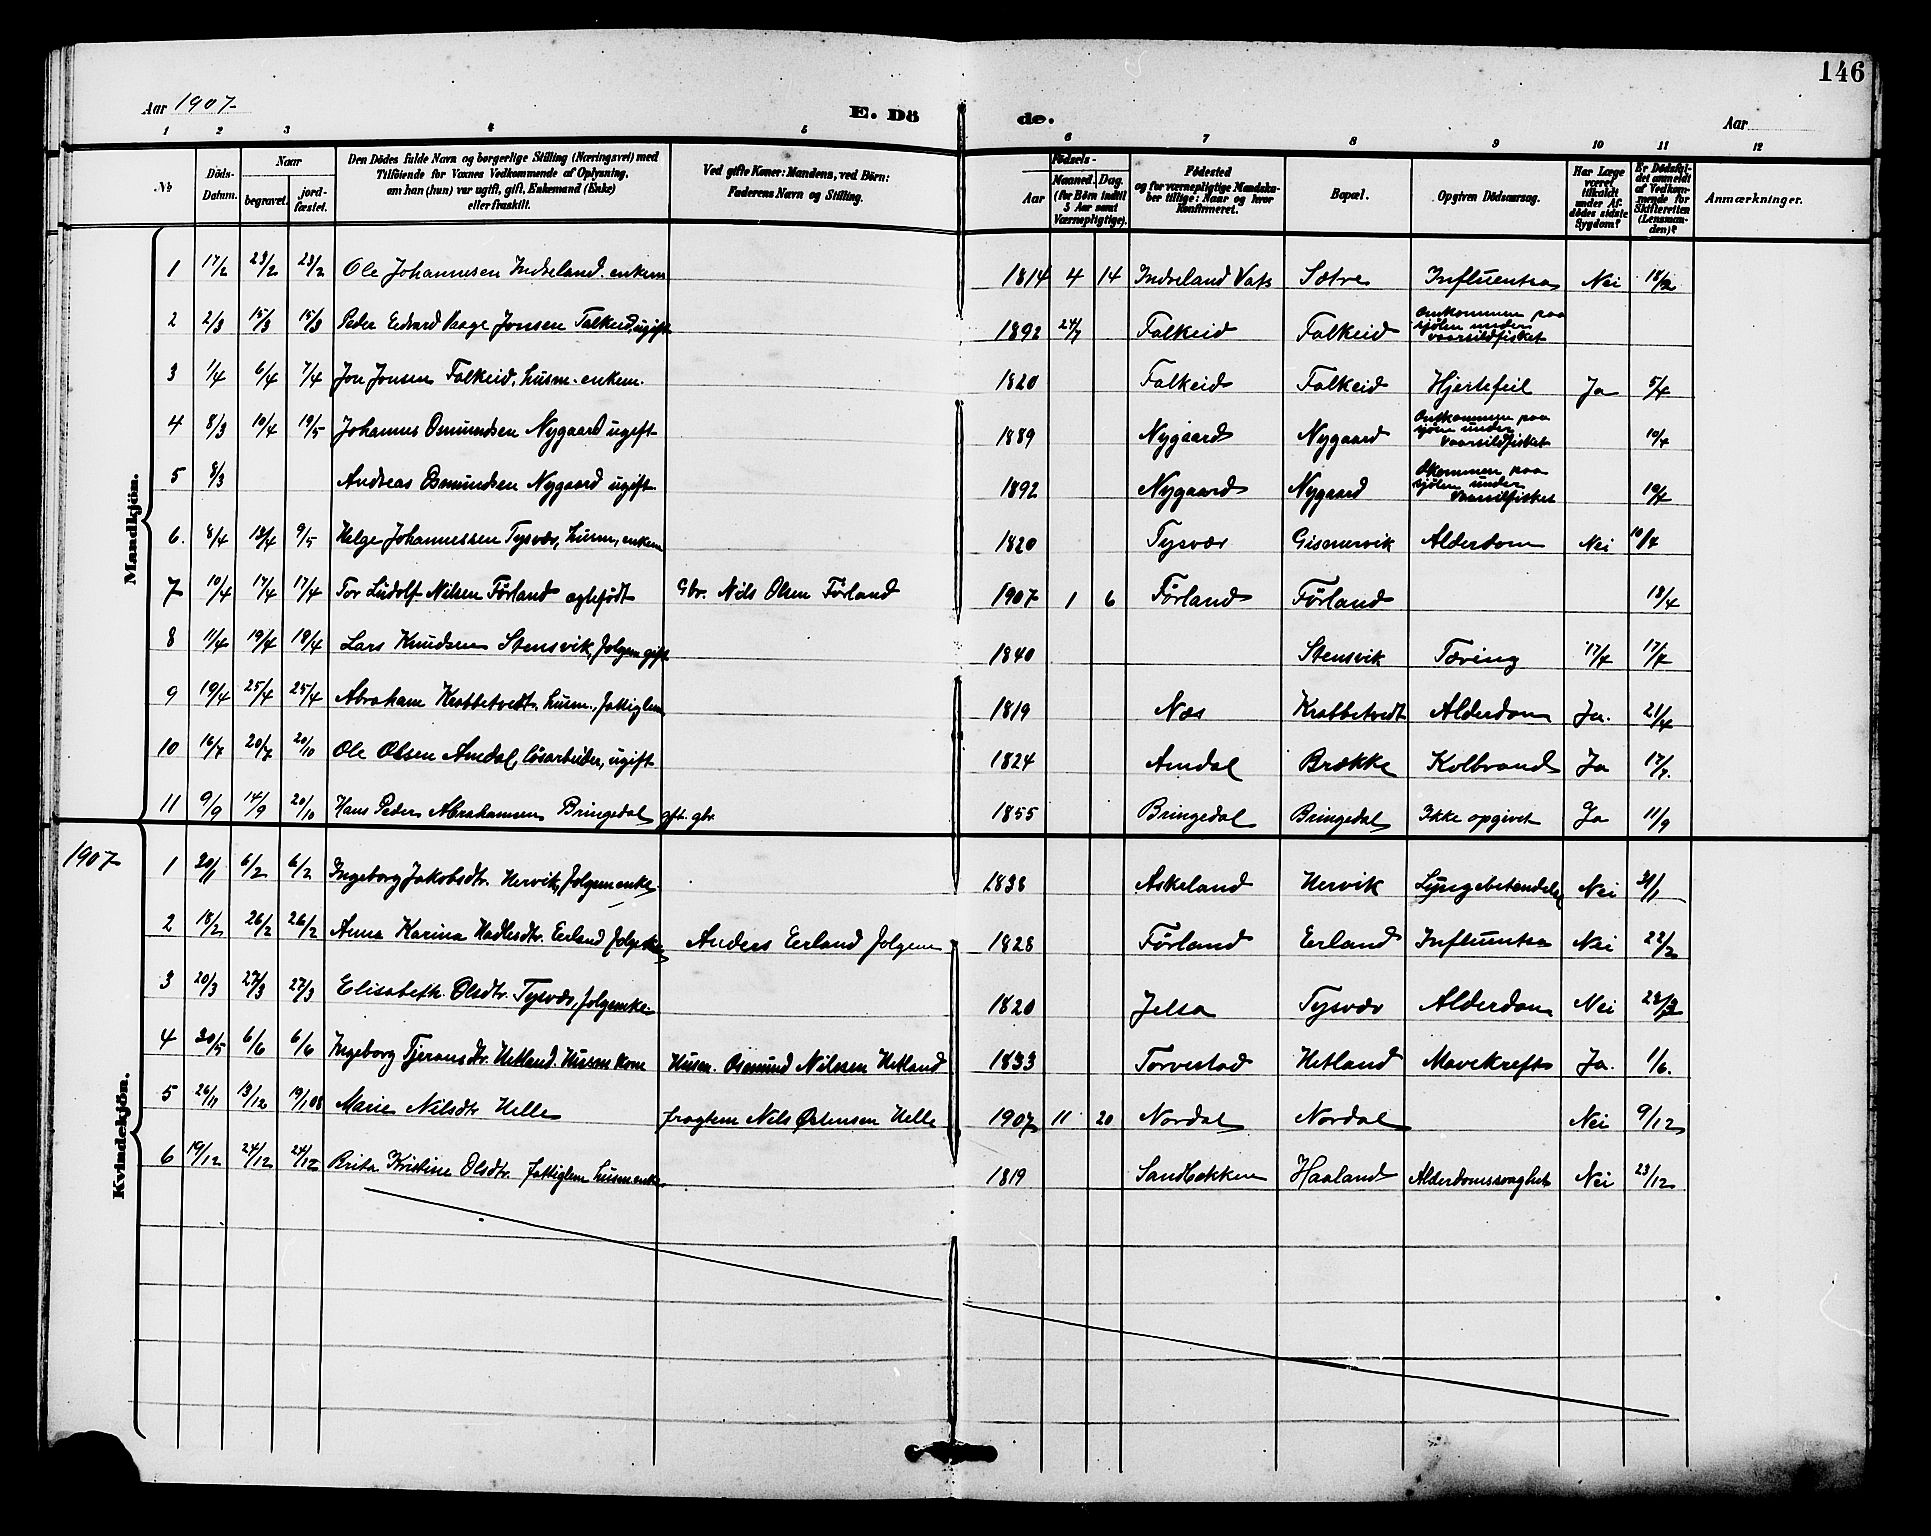 146
Aar 1907.
E. Dö de.
Aar
1 2 3 4 5 6 7 8 9 10 11 12
№
Döds-Datum.
Naar
begravet.
jord-fæstet.
Den Dödes fulde Navn og borgerlige Stilling (Næringsvei) med
Tilföiende for Voxnes Vedkommende af Oplysning,
om han (hun) var ugift, gift, Enkemand (Enke)
eller fraskilt.
Ved gifte Koner: Mandens, ved Börn:
Faderens Navn og Stilling.
Födsels-
Aar
Maaned. Dag.
(for Börn indtil
5 Aar samt
Værnepligtige).
Födested
og for værnepligtige Mandska-
ber tillige: Naar og hvor
Konfirmeret.
Bopæl.
Opgiven Dödsaarsag.
Har Læge
været
tilkaldt
under Af-
dödes sidste
Sygdom?
Er Dödsfal-
det anmeldt
af Vedkom-
mende for
Skifteretten
(Lensman-
den)?
Anmærkninger.
Mandkjön.
1 17/2 23/2 23/2 Ole Johannesen Indreland. enkem 1814 4 14 Indreland Vats Sætre Influentsa Nei 18/2
2 2/3 15/3 15/3 Peder Edvard Vaage Jonsen Falkeid, ugift 1892 24/7 Falkeid Falkeid Omkommen paa sjøen under vaarsildfisket
3 1/4 6/4 7/4 Jon Jonsen Falkeid, husm. enkem. 1820 Falkeid Falkeid Hjertefeil Ja 5/4
4 8/3 10/4 19/5 Johannes Osmundsen Nygaard ugift 1889 Nygaard Nygaard Omkommen paa sjøen under vaarsildfisket 10/4
5 8/3 Andreas Osmundsen Nygaard ugift 1892 Nygaard Nygaard Okommen paa sjøen under vaarsildfisket 10/4
6. 8/4 13/4 9/5 Helge Johannessen Tysvær, husm, enkem 1820 Tysvær Alderdom Nei 10/4
7 10/4 17/4 17/4 Tor Ludolf Nilsen Førland ægtefødt Gbr. Nils Olsen Førland 1907 1 6 Førland Førland 18/4
8 11/4 19/4 19/4 Lars Knudsen Stensvik, folgem gift 1840 Stensvik Tæring 17/4 17/4
9 19/4 25/4 25/4 Abraham Krabbetvedt, husm., fattiglem 1819 Næs Krabbetvedt Alderdom Ja. 21/4
10 16/7 20/7 20/10 Ole Olsen Amdal, løsarbeider, ugift 1824 Amdal Brække Kolbrand Ja 17/7.
11 9/9 14/9 20/10 Hans Peder Abrahamsen Bringedal gift. gbr. 1855 Bringedal Bringedal Ikke opgivet Ja 11/9
1907
Kvindekjön.
1 20/1 6/2 6/2 Ingeborg Jakobsdtr. Hervik, folgem enke. 1838 Askeland Hervik Nei 31/1
2 18/2 26/2 26/2 Anna Karina Erland Anders Erland folgem 1828 Førland Erland Influentsa Nei 22/2
3 20/3 27/3 27/3 Elisabeth Olsdtr. Tysvær, folgemke 1820 Jelsa Tysvær Alderdom Nei 23/3
4 20/5 6/6 6/6 Ingeborg Tjeransdtr. Hetland. Husm kone Husm. Osmund Nilssen Hetland 1833 Torvestad Hetland Mavekreft Ja. 1/6.
5 26/11 13/12 19/1 08 Marie Nilsdtr Helle fragtem Nils Østensen Helle 1907 11 20 Nordal Nordal Nei 9/12
6 19/12 24/12 24/12 Brita Kristine Olsdtr. fattiglem husm enke. 1819 Sandbekken Haaland Alderdomssvaghet Nei 23/12